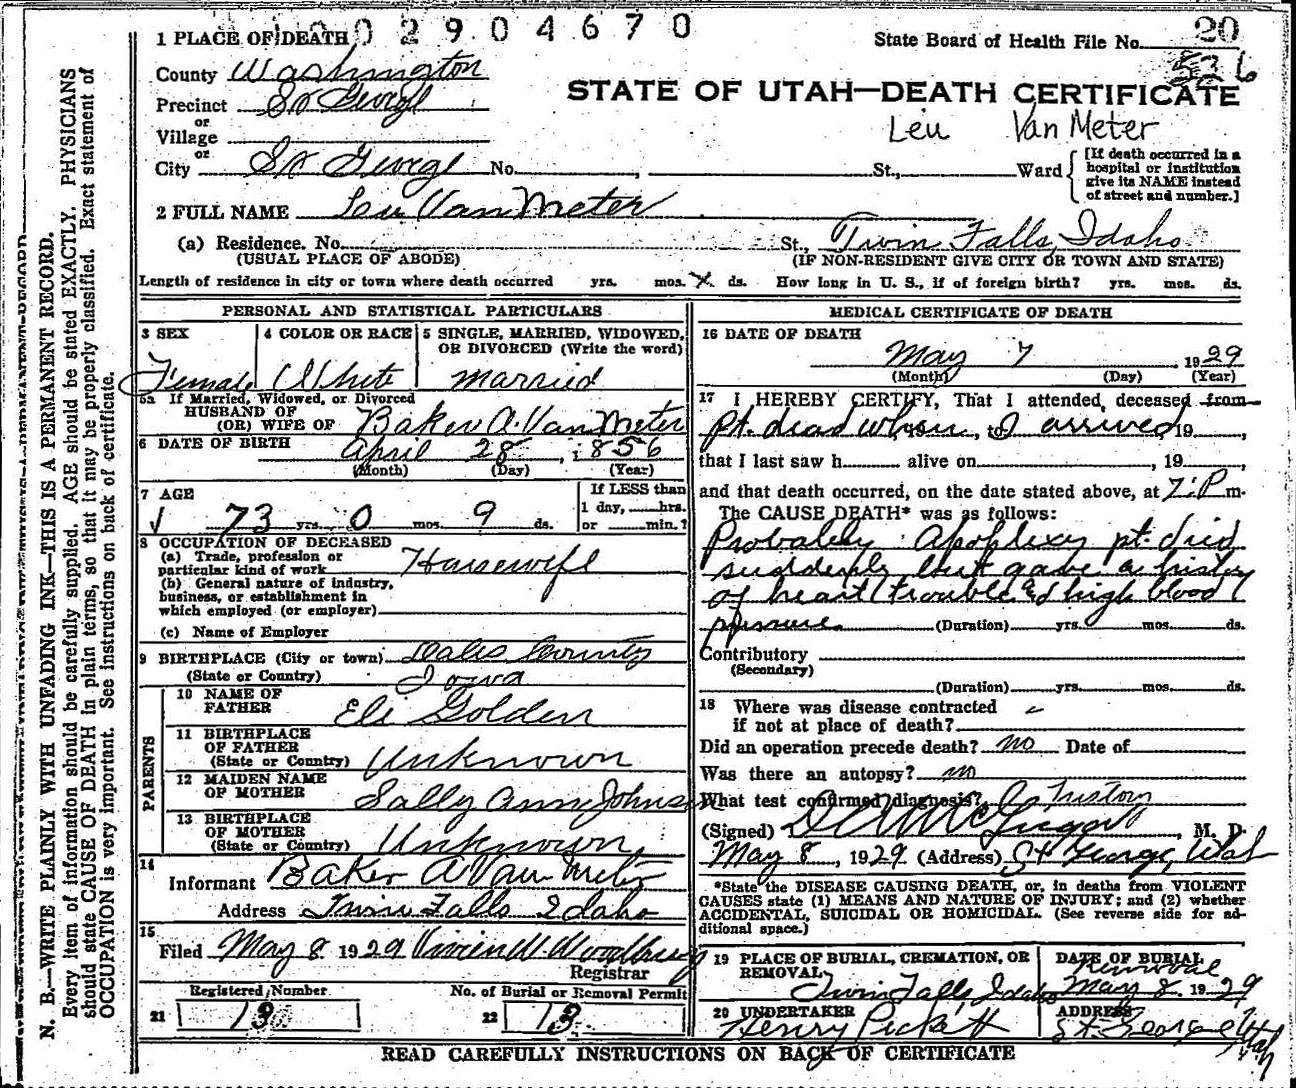 0 0 2 9 0 4 6 7 0
1 PLACE OF DEATH
State Board of Health File No. 20
526
County Washington
Precinct St George
STATE OF UTAH—DEATH CERTIFICATE
or
Village
Leu Van Meter
or
City St George No. , St., Ward
[If death occurred in a hospital or institution give its NAME instead of street and number.]
2 FULL NAME Leu Van Meter
(a) Residence. No. St., Twin Falls, Idaho
(USUAL PLACE OF ABODE) (IF NON-RESIDENT GIVE CITY OR TOWN AND STATE)
Length of residence in city or town where death occurred yrs. mos. X ds. How long in U. S., if of foreign birth? yrs. mos. ds.
PERSONAL AND STATISTICAL PARTICULARS
3 SEX
Female
4 COLOR OR RACE
White
5 SINGLE, MARRIED, WIDOWED,
OR DIVORCED (Write the word)
Married
5a If Married, Widowed, or Divorced
HUSBAND OF
(OR) WIFE OF Baker A. Van Meter
6 DATE OF BIRTH April 28, 1856
(Month) (Day) (Year)
7 AGE
73 yrs. 0 mos. 9 ds.
If LESS than
1 day, hrs.
or min.?
8 OCCUPATION OF DECEASED
(a) Trade, profession or
particular kind of work Housewife
(b) General nature of industry,
business, or establishment in
which employed (or employer)
(c) Name of Employer
9 BIRTHPLACE (City or town) County
(State or Country) Iowa
PARENTS
10 NAME OF
FATHER Eli Golden
11 BIRTHPLACE
OF FATHER
(State or Country) Unknown
12 MAIDEN NAME
OF MOTHER Sally Ann Johnson
13 BIRTHPLACE
OF MOTHER
(State or Country) Unknown
14
Informant Baker A Van Meter
Address Twin Falls Idaho
15
Filed May 8 1929 Woodbury
Registrar
Registered Number
21 13
No. of Burial or Removal Permit
22 13
MEDICAL CERTIFICATE OF DEATH
16 DATE OF DEATH
May 7 1929
(Month) (Day) (Year)
17 I HEREBY CERTIFY, That I attended, deceased from
pt. dead when, 19 , to I arrived, 19 ,
that I last saw h alive on , 19 ,
and that death occurred, on the date stated above, at 7:P m.
The CAUSE DEATH* was as follows:
Probably Apoplexy pt. died
suddenly but gave a history
of heart trouble & high blood
pressure. (Duration) yrs. mos. ds.
Contributory
(Secondary)
(Duration) yrs. mos. ds.
18 Where was disease contracted
if not at place of death?
Did an operation precede death? no Date of
Was there an autopsy? no
What test confirmed diagnosis? History
(Signed) McGregor, M. D.
May 8, 1929 (Address) St George, Utah
*State the DISEASE CAUSING DEATH, or, in deaths from VIOLENT
CAUSES state (1) MEANS AND NATURE OF INJURY; and (2) whether
ACCIDENTAL, SUICIDAL OR HOMICIDAL. (See reverse side for ad-
ditional space.)
19 PLACE OF BURIAL, CREMATION, OR
REMOVAL
Twin Falls Idaho
DATE OF BURIAL
Removal
May 8 1929
20 UNDERTAKER
Henry Pickett
ADDRESS
St. George Utah
READ CAREFULLY INSTRUCTIONS ON BACK OF CERTIFICATE
N. B.—WRITE PLAINLY WITH UNFADING INK—THIS IS A PERMANENT RECORD.
Every item of information should be carefully supplied. AGE should be stated EXACTLY. PHYSICIANS
should state CAUSE OF DEATH in plain terms, so that it may be properly classified. Exact statement of
OCCUPATION is very important. See instructions on back of certificate.